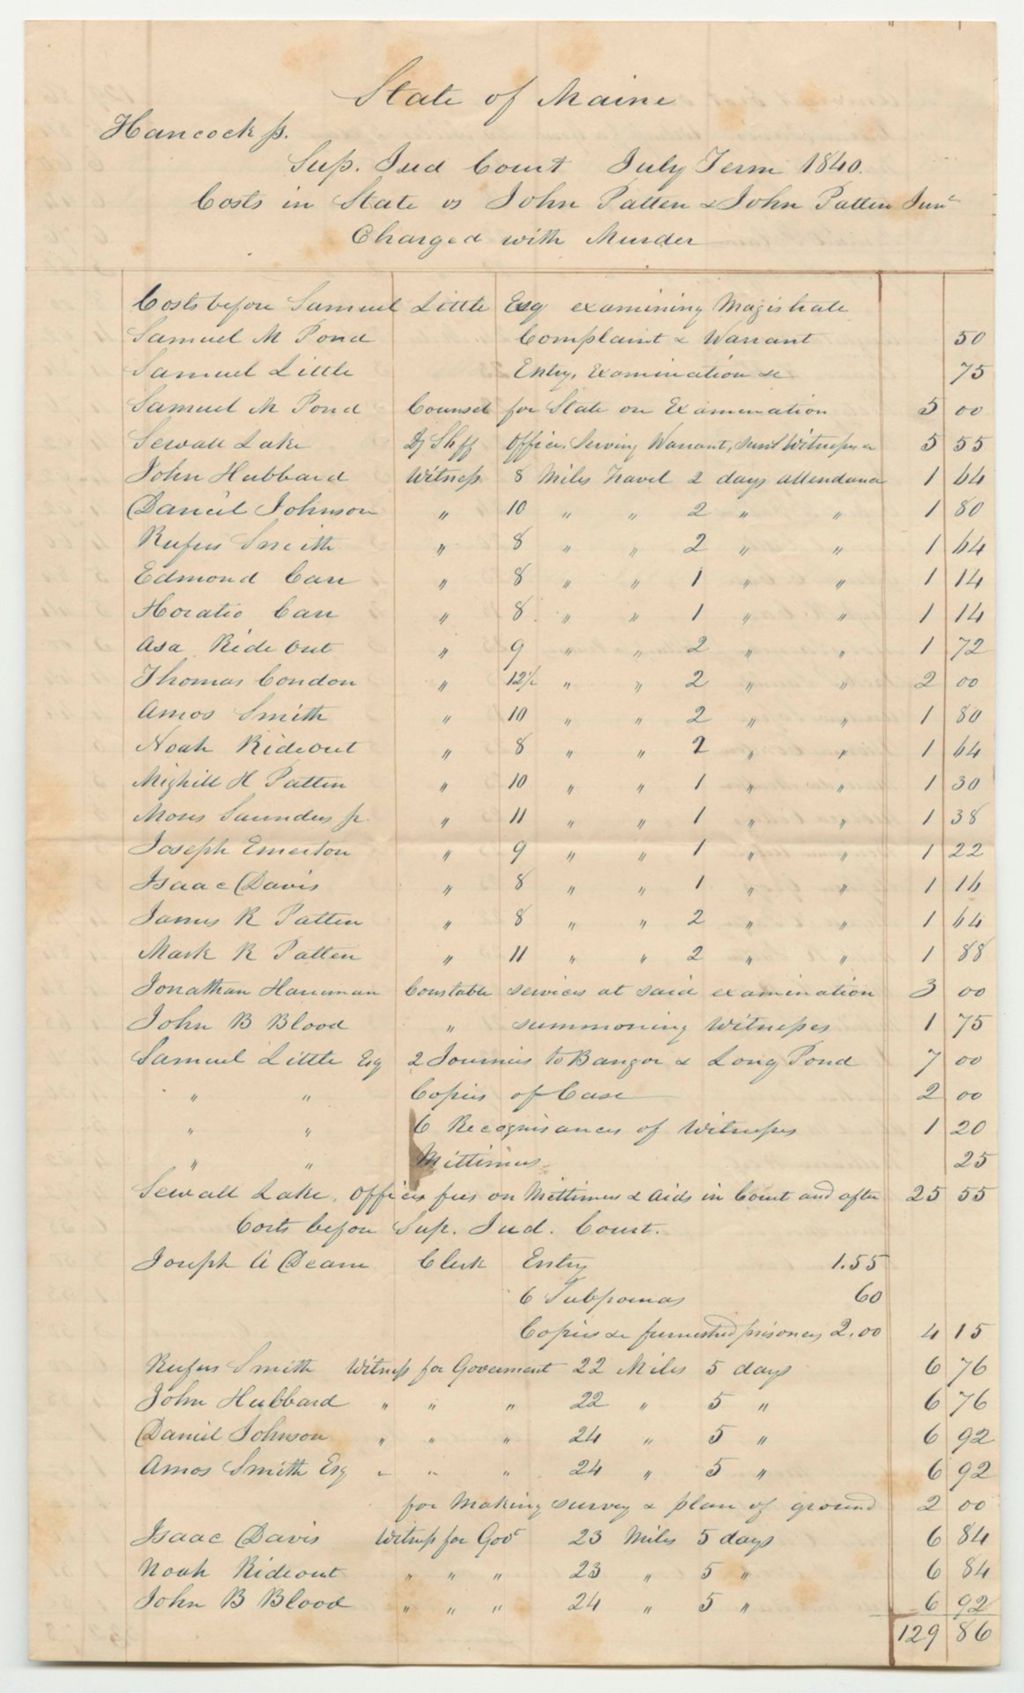 State of Maine
Hancock ss.
Sup. Jud Court July Term 1840.
Costs in State vs John Patten & John Patten Junr
Charged with Murder
Costs before Samuel Little Esq examining Magistrate
Samuel M Pond Complaint & Warrant 50
Samuel Little Entry, Examination &c 75
Samuel M Pond Counsel for State on Examination 5 00
Sewall Lake Dy Shff Officer Serving Warrant, Witnesses 5 55
John Hubbard Witness 8 Miles travel 2 days attendance 1 64
Daniel Johnson " 10 " " 2 " " 1 80
Rufus Smith " 8 " " 2 " " 1 64
Edmond Carr " 8 " " 1 " " 1 14
Horatio Carr " 8 " " 1 " " 1 14
Asa Ride out " 9 " " 2 " " 1 72
Thomas Condon " 12½ " " 2 " " 2 00
Amos Smith " 10 " " 2 " " 1 80
Noah Rideout " 8 " " 2 " " 1 64
Mighill H Patten " 10 " " 1 " " 1 30
Moses Saunders Jr. " 11 " " 1 " " 1 38
Joseph Emerton " 9 " " 1 " " 1 22
Isaac Davis " 8 " " 1 " " 1 14
James R Patten " 8 " " 2 " " 1 64
Mark R Patten " 11 " " 2 " " 1 88
Jonathan Hanman Constable services at said examination 3 00
John B Blood " summoning Witnesses 1 75
Samuel Little Esq 2 Journies to Bangor & Long Pond 7 00
" " Copies of Case 2 00
" " 6 Recognisances of Witnesses 1 20
" " Mittimus 25
Sewall Lake, Officers fees on Mittimus & Aids in Court and after 25 55
Costs before Sup. Jud. Court.
Joseph A Deane Clerk Entry 1.55
6 Subpoenas 60
Copies &c furnished prisoners 2.00 4 15
Rufus Smith Witness for Government 22 Miles 5 days 6 76
John Hubbard " " " 22 " 5 " 6 76
Daniel Johnson " " " 24 " 5 " 6 92
Amos Smith Esq " " " 24 " 5 " 6 92
for Making survey & plan of ground 2 00
Isaac Davis Witness for Govt 23 Miles 5 days 6 84
Noah Rideout " " " 23 " 5 " 6 84
John B Blood " " " 24 " 5 " 6 92
129 86